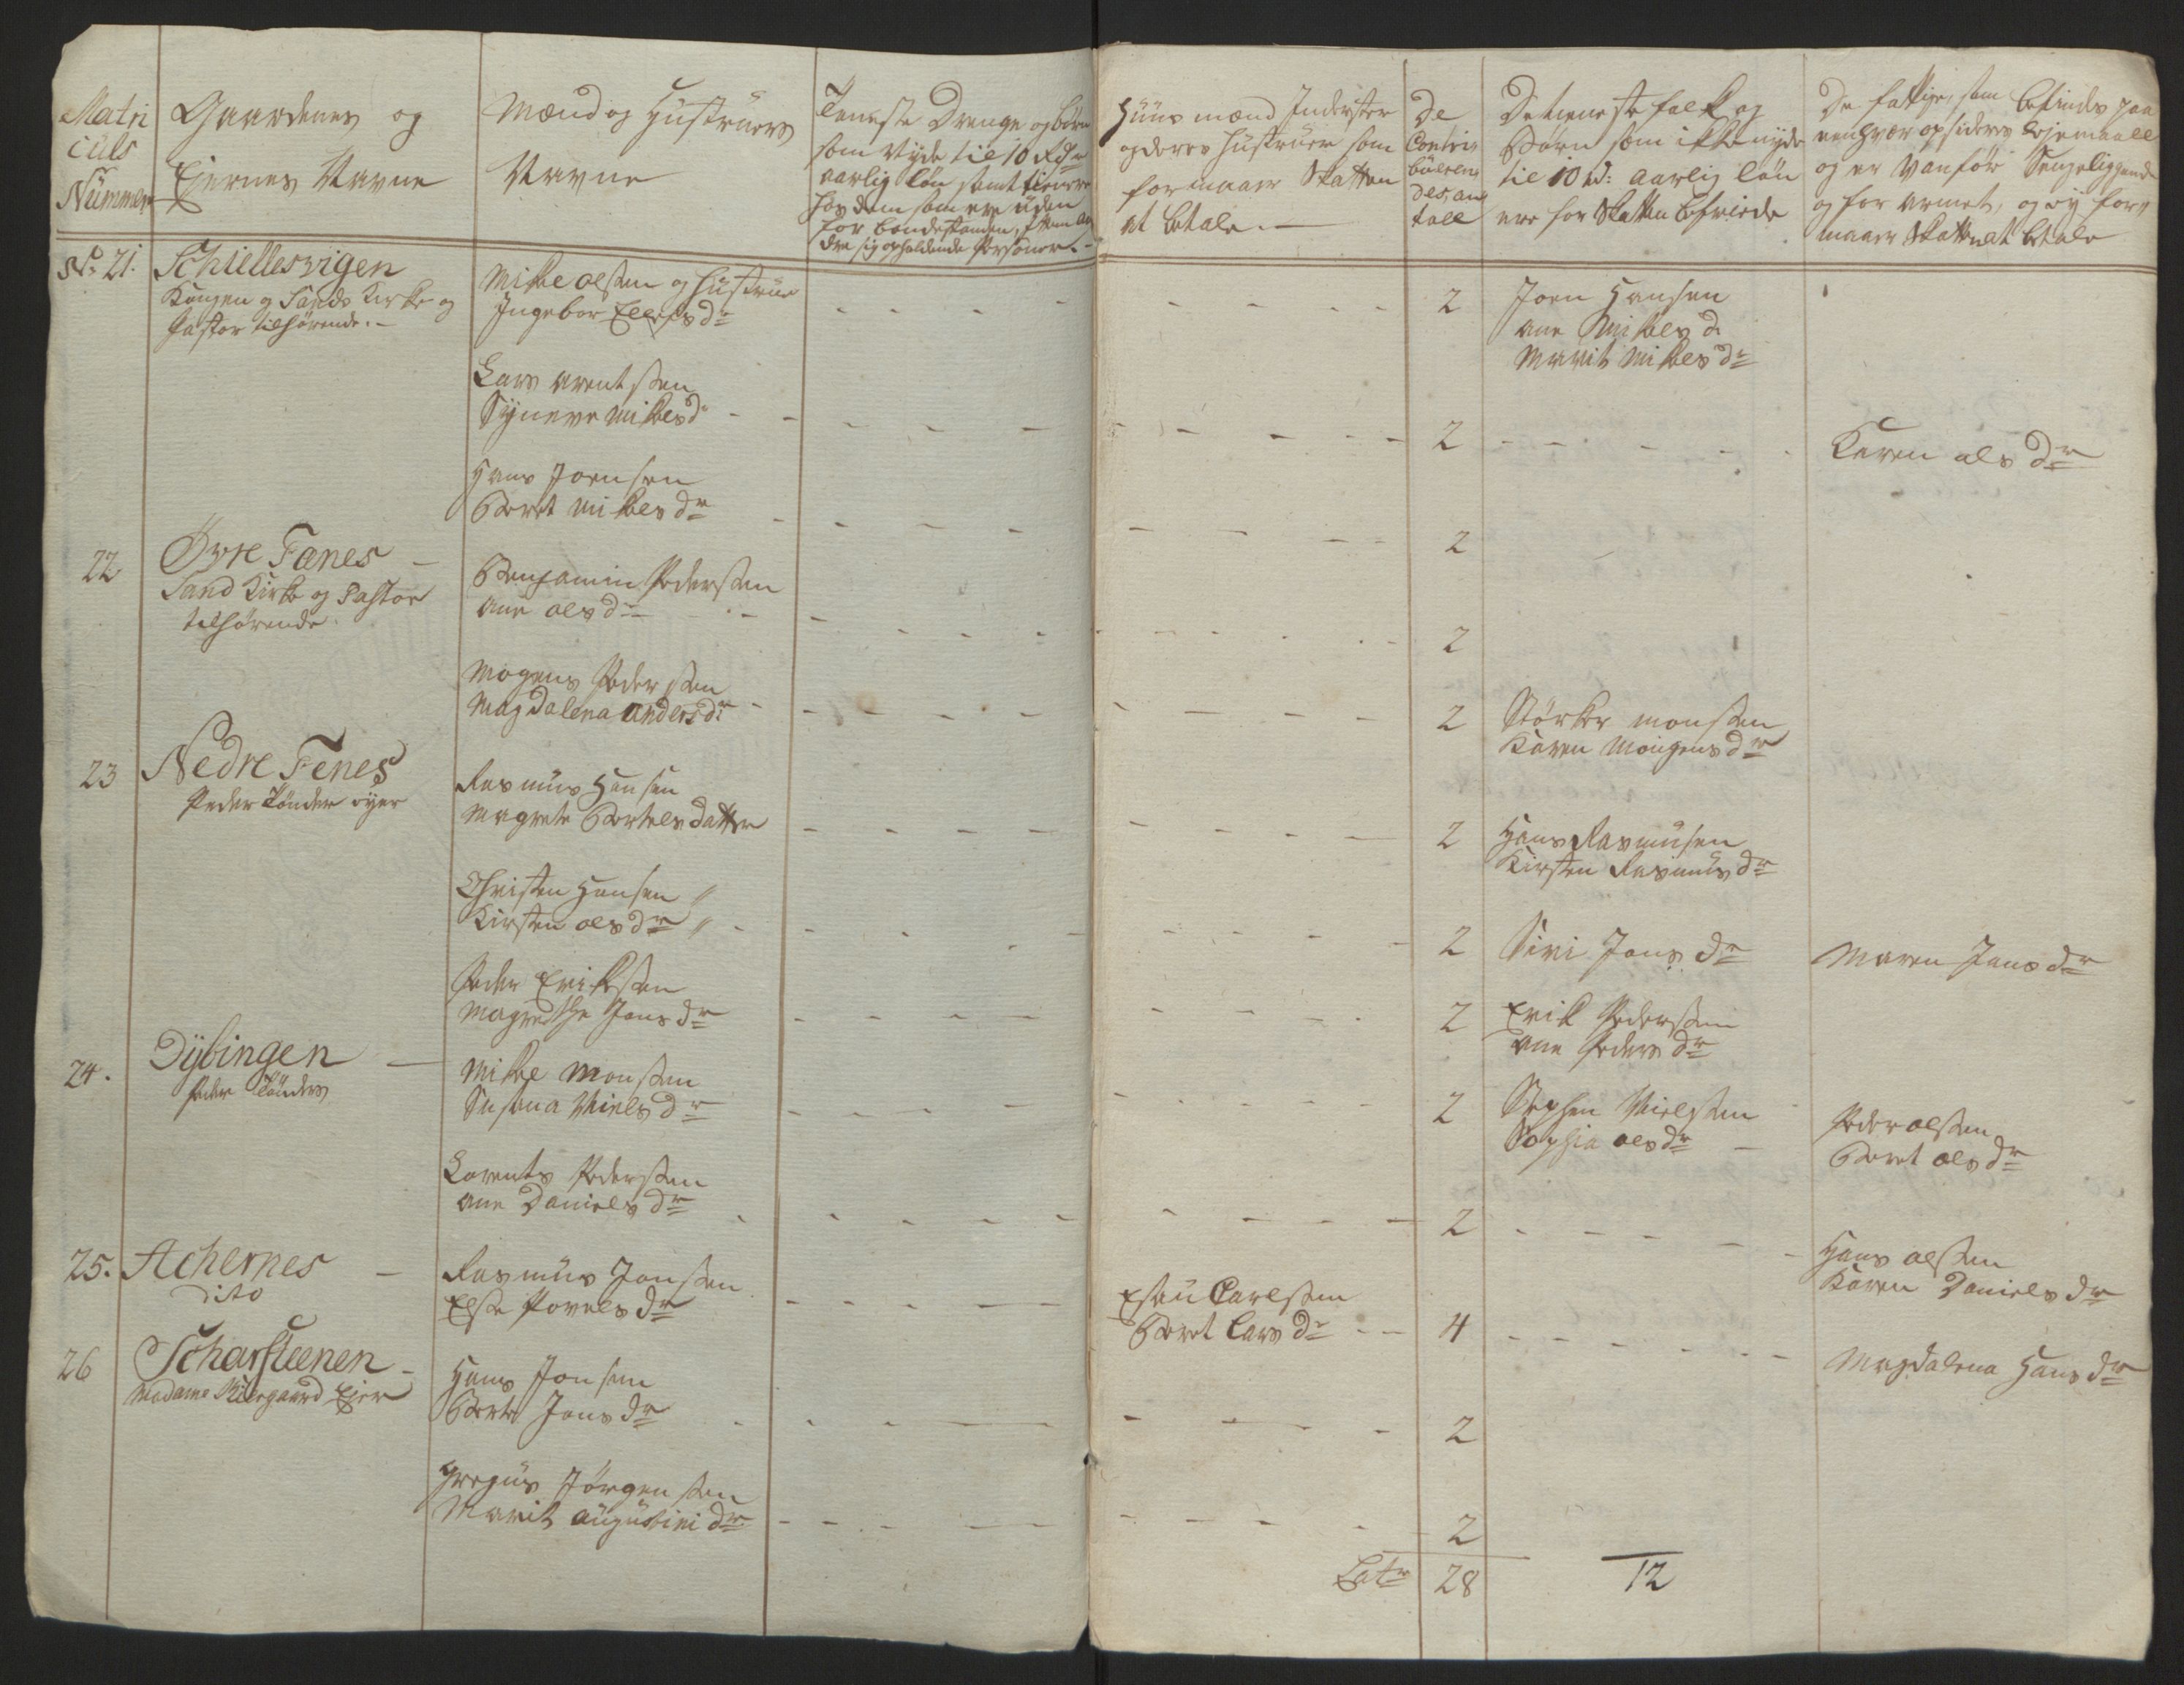 Matri
culs
Nummer
Gaardenes og
Ejernes Navne
Mænd og Hustruers
Navne
Teneste Drenge og börn
som Nyde til 10 Rdr
aarlig Lön samt tienere
hos dem som ere uden
for bondestanden, item an
dre sig opholdende Personer.
Huus mænd Inderster
og deres Hustruer som
formaaer Skatten
at betale.
De
Contri
buerens
des an
tall
De tieneste folk og
Börn som ikke nyde
til 10 rd: aarlig lön
ere for Skatten befriede
De fattige, som befindes paa
eenhver opsiders leje maall
og er Vanför Sengeliggende
og for armet, og ey for
maaer Skatten at betale
No. 21. Schiellesvigen
Kongen og Sands Kirke og
Pastor tilhörende.
Mikel olsen og Hustrue
Ingebor Ellefs dr
2
Joen Hansen
ane Mikels dr
Marit Mikels dr
Lars arentsen
Synneve Mikels dr
2
Karen ols dr
Hans Joensen
Beret Mikels dr
2
22 Övre Fanes
Sand Kirke og Pastor
tilhörende
Benjamin Pedersen
ane ols dr
2
Mogens Pedersen
Magdalena anders dr
2
Störker monsen
Karen Mongens dr
23 Nedre Fenes
Peder Tönder ejer
Rasmus Hansen
Magrete Bertels datter
2
Hans Rasmusen
Kirsten Rasmus dr
Christen Hansen
Kirsten ols dr
2
Siri Jons dr
Maren Jans dr
Peder Eriksen
Magrethe Jons dr
2
Erik Pedersen
ane Peders dr
24. Dybingen
Peder Tönders
Mikel Monsen
Susana Niels dr
2
Stephen Nielsen
Sophia ols dr
Peder olsen
Beret ols dr
Lorents Pedersen
ane Daniels dr
2
Hans olsen
Karen Daniels dr
25. Achernes
dito
Rasmus Jonsen
Else Povels dr
Esau Carlsen
Beret Lars dr
4
Magdalena Hans dr
26 Scharsteenen
Madame Kiergaard Ejer
Hans Jonsen
Berte Jons dr
2
Gregus Jörgensen
Marit augustini dr
2
Latr 28
12